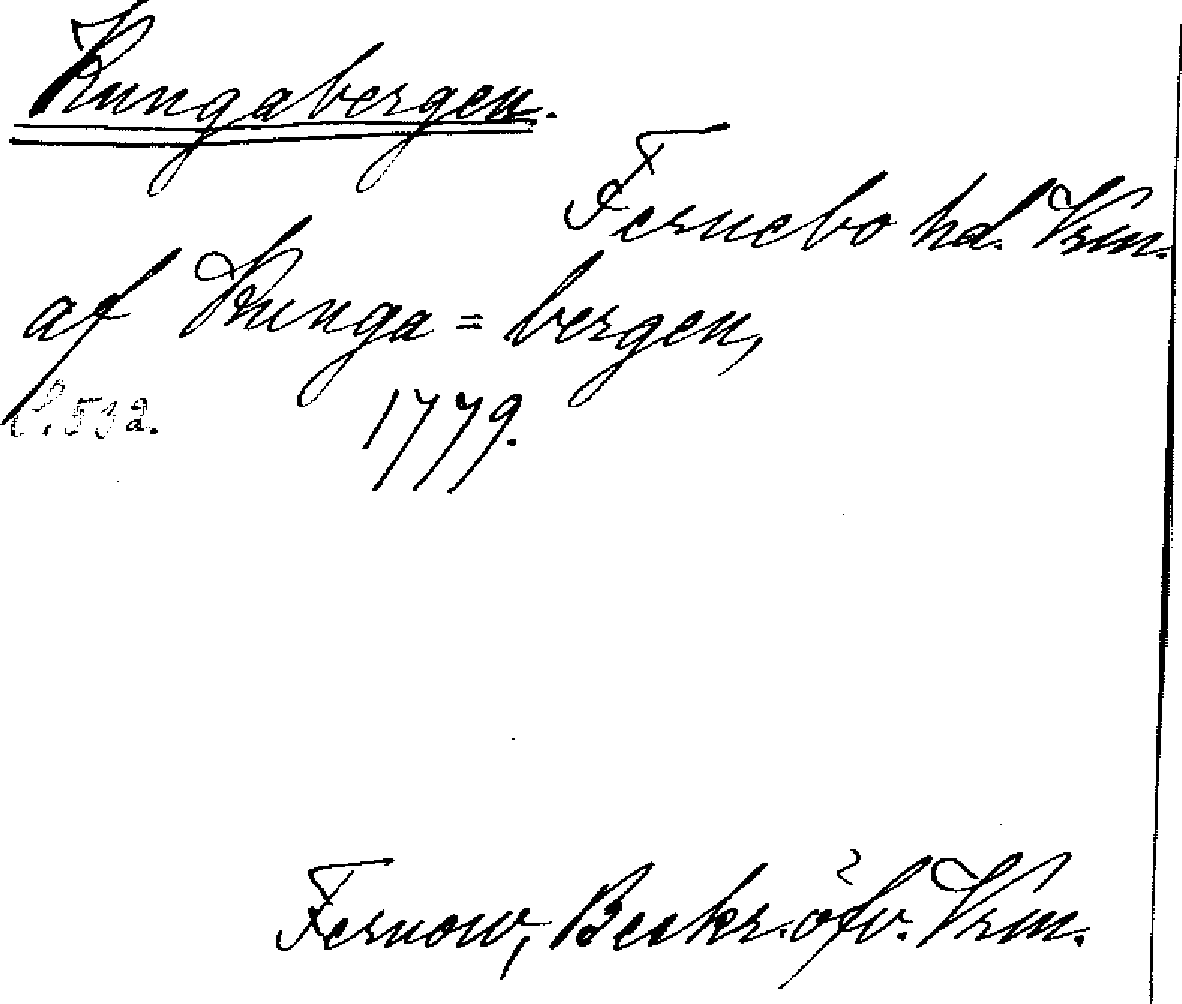 Kungabergen.
Fernebo hd. Vrm.
af Kunga=bergen,
s. 532. 1779.
Fernow, Beskr. öfv. Vrm.